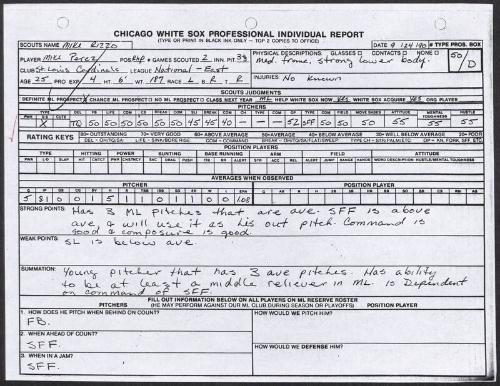 CHICAGO WHITE SOX PROFESSIONAL INDIVIDUAL REPORT
(TYPE OR PRINT IN BLACK INK ONLY - TOP 2 COPIES TO OFFICE)
SCOUTS NAME MIKE RIZZO
DATE 9/24/90 # TYPE PROS. BOX
PLAYER Mike Perez POS RHP # GAMES SCOUTED 2 INN. PIT. 3⅔
PHYSICAL DESCRIPTIONS: GLASSES ☐ CONTACTS ☐
50/D
CLUB St Louis Cardinals LEAGUE National - East
med. frame, strong lower body.
AGE 25 PRO EXP. 4 HT. 6' WT. 187 RACE L B R T R
INJURIES: No Known
SCOUTS JUDGMENTS
DEFINITE ML PROSPECT X CHANCE ML PROSPECT NO ML PROSPECT CLASS NEXT YEAR ML HELP WHITE SOX NOW yes WHITE SOX ACQUIRE yes ORG PLAYER
PITCHERS
X TQ 50 50 50 50 50 45 45 40 - - - 52 SFF 50 50 55 55 55
RATING KEYS
80=OUTSTANDING 70=VERY GOOD 60=ABOVE AVERAGE 50=AVERAGE 40=BELOW AVERAGE 30=WELL BELOW AVERAGE 20=POOR
POSITION PLAYERS
TYPE HITTING POWER BUNTING BASE RUNNING ARM FIELDING
AVERAGES WHEN OBSERVED
PITCHER POSITION PLAYER
STRONG POINTS: Has 3 ML pitches that are ave. SFF is above
ave, & will use it as his out pitch. Command is
good & composure is good.
WEAK POINTS: SL is below ave.
SUMMATION: Young pitcher that has 3 ave pitches. Has ability
to be at least a middle reliever in ML. Is Dependent
on command of SFF.
FILL OUT INFORMATION BELOW ON ALL PLAYERS ON ML RESERVE ROSTER
(HE MAY PERFORM AGAINST OUR ML CLUB DURING SEASON OR PLAYOFFS)
PITCHERS POSITION PLAYER
1. HOW DOES HE PITCH WHEN BEHIND ON COUNT?
HOW WOULD WE PITCH HIM?
FB.
2. WHEN AHEAD OF COUNT?
SFF.
HOW WOULD WE DEFENSE HIM?
3. WHEN IN A JAM?
SFF.